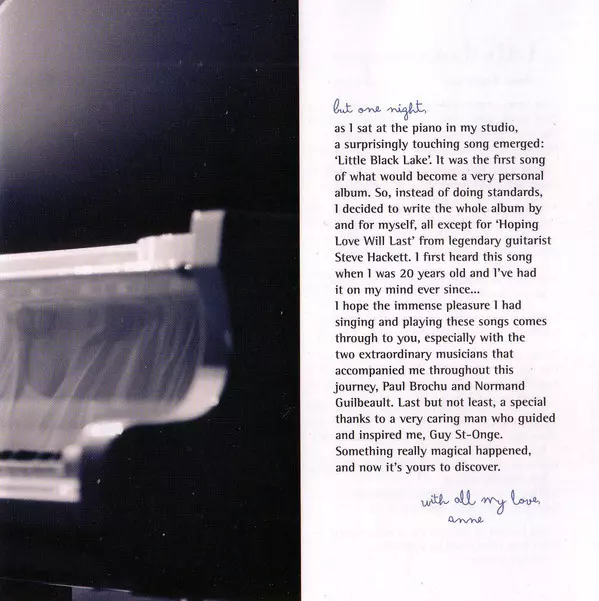 but one night,
as I sat at the piano in my studio,
a surprisingly touching song emerged:
'Little Black Lake'. It was the first song
of what would become a very personal
album. So, instead of doing standards,
I decided to write the whole album by
and for myself, all except for 'Hoping
Love Will Last' from legendary guitarist
Steve Hackett. I first heard this song
when I was 20 years old and I've had
it on my mind ever since...
I hope the immense pleasure I had
singing and playing these songs comes
through to you, especially with the
two extraordinary musicians that
accompanied me throughout this
journey, Paul Brochu and Normand
Guilbeault. Last but not least, a special
thanks to a very caring man who guided
and inspired me, Guy St-Onge.
Something really magical happened,
and now it's yours to discover.
with all my love,
anne